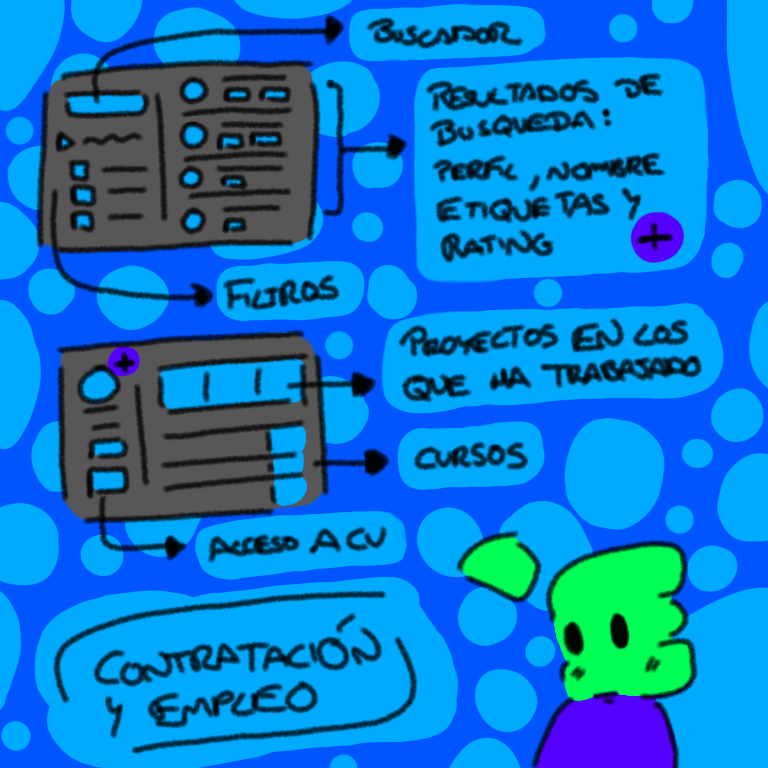 BUSCADOR
RESULTADOS DE
BUSQUEDA:
PERFIL, NOMBRE
ETIQUETAS Y
RATING
+
FILTROS
+
PROYECTOS EN LOS
QUE HA TRABAJADO
CURSOS
ACCESO A CV
CONTRATACIÓN
Y EMPLEO